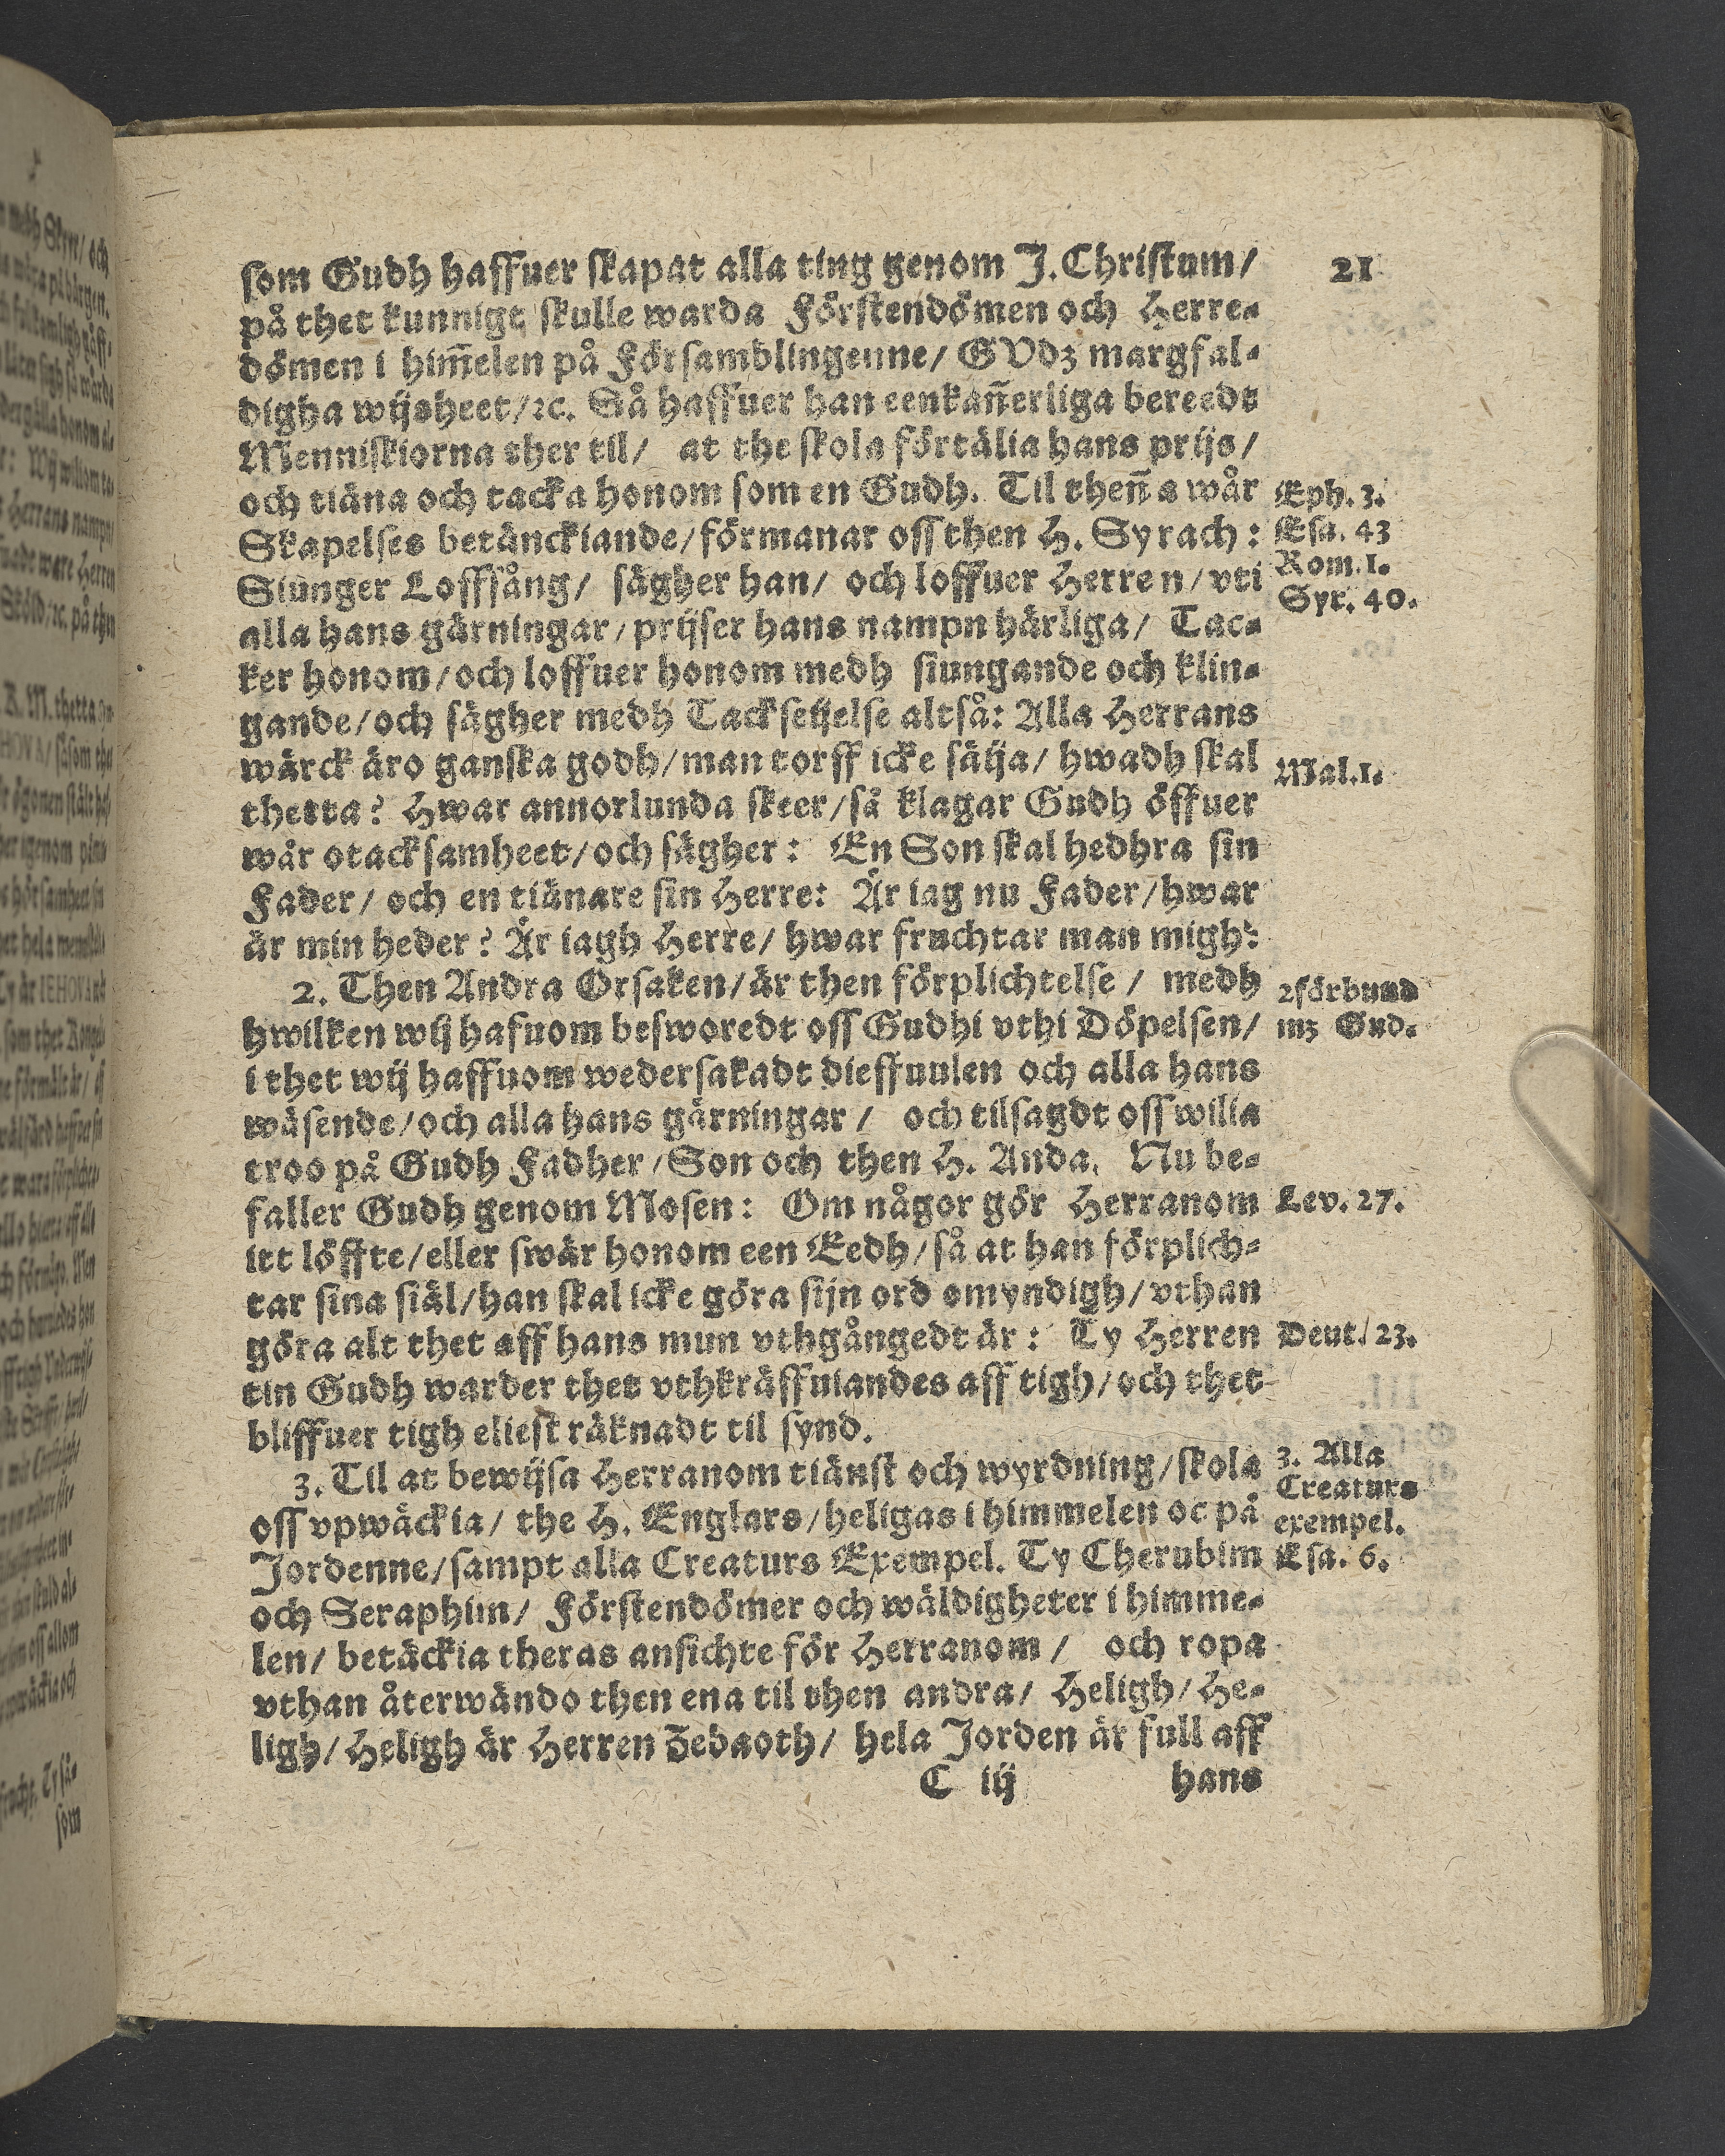 21
som Gudh haffuer skapat alla ting genom J. Christum/
på thet kunnigt skulle warda Förstendömen och Herre-
dömen i him̃elen på Församblingenne/ GVDz margfal-
digha wijsheet/ ꝛc. Så haffuer han eenkañerliga bereedt
Menniskiorna ther til/ at the skola förtälia hans prijs/
och tiäna och tacka honom som en Gudh. Til theña wår
Eph. 3.
Skapelses betänckiande/ förmanar oss then H. Syrach:
Esa. 43
Siunger Loffsång/ sägher han/ och loffuer Herren/ vti
Rom. 1.
Syr. 40.
alla hans gärningar/ prijser hans nampn härliga/ Tac-
ker honom/ och loffuer honom medh siungande och klin-
gande/ och sägher medh Tackseijelse altså: Alla Herrans
wärck äro ganska godh/ man torff icke säija/ hwadh skal
Mal. 1.
thetta? Hwar annorlunda skeer/ så klagar Gudh öffuer
wår otacksamheet/ och sägher: En Son skal hedhra sin
Fader/ och en tiänare sin Herre: Är iag nu Fader/ hwar
är min heder? Är iagh Herre/ hwar fruchtar man migh:
2. Then Andra Orsaken/ är then förplichtelse/ medh
2 förbund
hwilken wij hafuom besworedt oss Gudhi vthi Döpelsen/
mz Gud.
i thet wij haffuom wedersakadt dieffuulen och alla hans
wäsende/ och alla hans gärningar/ och tilsagdt oss wilia
troo på Gudh Fadher/ Son och then H. Anda. Nu be-
faller Gudh genom Mosen: Om någor gör Herranom
Lev. 27.
itt löffte/ eller swär honom een Eedh/ så at han förplich-
tar sina siäl/ han skal icke göra sijn ord omyndigh/ vthan
göra alt thet aff hans mun vthgångedt är: Ty Herren
Deut. 23.
tin Gudh warder thet vthkräffuiandes aff tigh/ och thet
bliffuer tigh eliest räknadt til synd.
3. Til at bewijsa Herranom tiänst och wyrdning/ skola
3. Alla
Creaturs
oss vpwäckia/ the H. Englars/ heligas i himmelen oc på
exempel.
Jordenne/ sampt alla Creaturs Exempel. Ty Cherubim
Esa. 6.
och Seraphim/ Förstendömer och wäldigheter i himme-
len/ betäckia theras ansichte för Herranom/ och ropa
vthan återwändo then ena til then andra/ Heligh/ He-
ligh/ Heligh är Herren Zebaoth/ hela Jorden är full aff
C iij hans